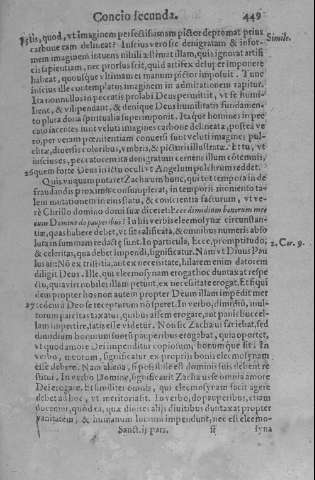 Concio secunda. 449
istis, quod, vt imaginem perfectissimam pictor depromat prius
carbone eam delineat? Inscius vero sic denigratam & infor-
mem imaginem intuens nihili æstimat illam, quia ignorat artifi
cis sapientiam, nec prorsus scit, quid artifex deluper imponere
habeat, quousque vltimam ei manum pictor imposuit. Tunc
inscius ille contemplans imaginem in admirationem rapitur.
Ita nonnullos in peccatis prolabi Deus permittit, vt se humi
lient, & vilipendant, & denique Deus humilitatis fundamen-
to plura dona spiritualia superimponit. Itaque homines in pec
cato iacentes sunt veluti imagines carbone delineatæ, postea ve
rò, per veram pœnitentiam conuersi sunt veluti imagines pul-
chræ, diuersis coloribus, vmbris, & picturis illustratæ. Et tu, vt
inscius, peccatorem ita denigratum cernens illum cōtemnis,
& quem forte Deus in ictu oculi vt Angelum pulchrum reddet.
Quis vnquam putaret Zachæum hunc, qui tot tempora in de
fraudandis proximis consumpserat, in temporis momento ta
lem mutationem in eius statu, & conscientia facturum, vt ve-
rè Christo domino domi suæ diceret: Ecce dimidium bonorum me
orum Domine do pauperibus? In his verbis eleemosynæ circunstan-
tiæ, quas habere debet, vt sit qualificata, & omnibus numeris abso
luta in summam redactę sunt. In particula, Ecce, promptitudo,
& celeritas, qua debet impendi, significatur. Nam vt Diuus Pau
lus ait: Nō ex tristitia, aut ex necessitate, hilarem enim datorem
diligit Deus. Ille, qui eleemosynam erogat hoc duntaxat respe
ctu, quia viri nobiles illam petunt, ex necessitate erogat. Et si qui
dem propter homon autem propter Deum illam impedit mer
cedem à Deo se recepturum nō speret. In verbo, dimidium, mul-
torum paritas taxatur, quibus assem erogare, aut panis buccel-
lam impertire, satis esse videtur. Non sic Zachæus faciebat, sed
dimidium bonorum suorū pauperibus erogabat, quia oportet,
vt quod amore Dei impenditur copiosum, bonumque sit. In
verbo, meorum, significatur ex propriis bonis elemosynam
esse debere. Nam aliena, si possibile est dominis suis debent re
stitui. In verbo Domine, significauit Zachæus se omnia amore
Dei erogare. Et similiter omnis, qui eleemosynam facit agere
debet ad hoc, vt meritoria sit. In verbo, do pauperibus, etiam
docemur, quòd ea, quæ diuites aliis diuitibus duntaxat propter
vanitatem, & humanum lucrum impendunt, nec est eleemo-
Sanct. ij. pars. ff syna
Simile.
2. Cor. 9.